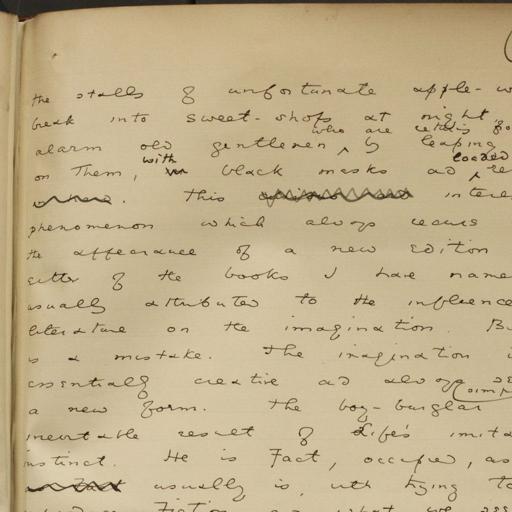 the stalls of unfortunate apple-w
break into sweet-shops at night
who are
alarm old gentlemen ^ by leaping
with loaded
on Them, black masks ad ^ re
. This interes
phenomenon which always occurs
the appearance of a new edition
either of the books I have name
usually attributed to the influence
literature on the imagination. Bu
is a mistake. The imagination i
essentially creative ad always se
a new form. The boy-burglar simp
inevitable result of Life's imita
instinct. He is Fact, occupied, as
usually is, with trying to
Fiction, ad what we see